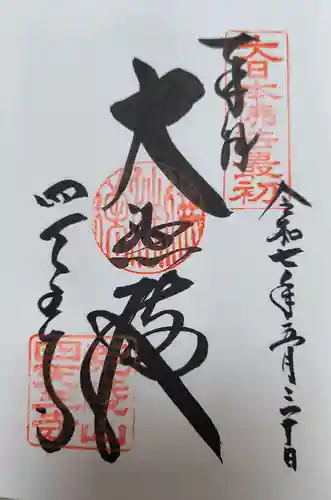 大日本佛法最初
奉拝
令和七年五月三十日
大悲殿
四天王寺
荒陵山
四天王寺